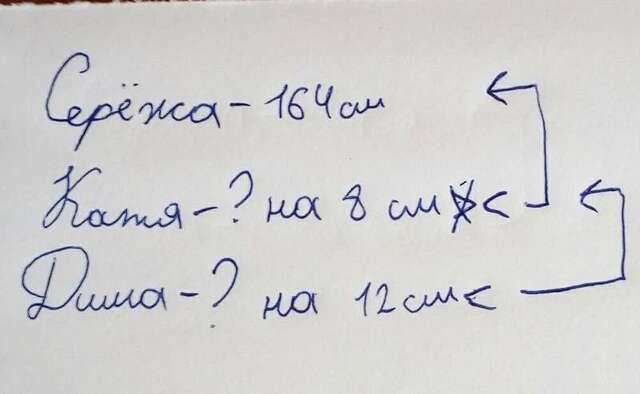 Серёжа – 164 см
Катя – ? на 8 см <
Дима – ? на 12 см <